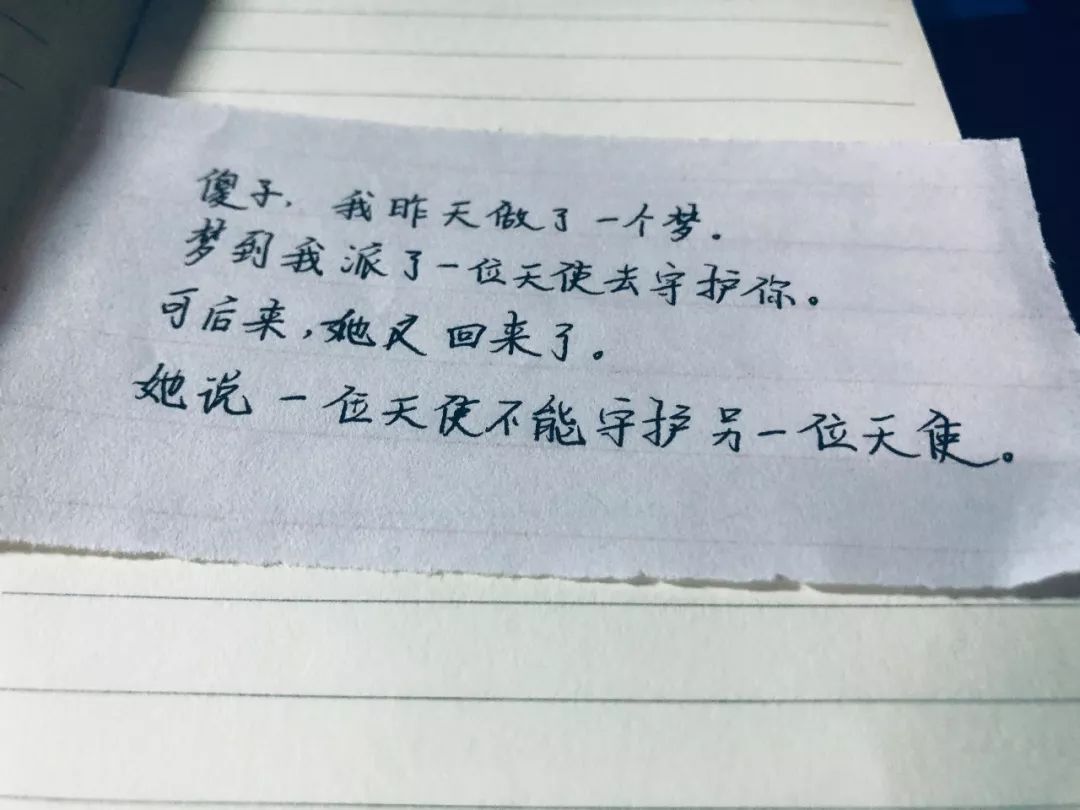 傻子，我昨天做了一个梦。
梦到我派了一位天使去守护你。
可后来，她又回来了。
她说一位天使不能守护另一位天使。